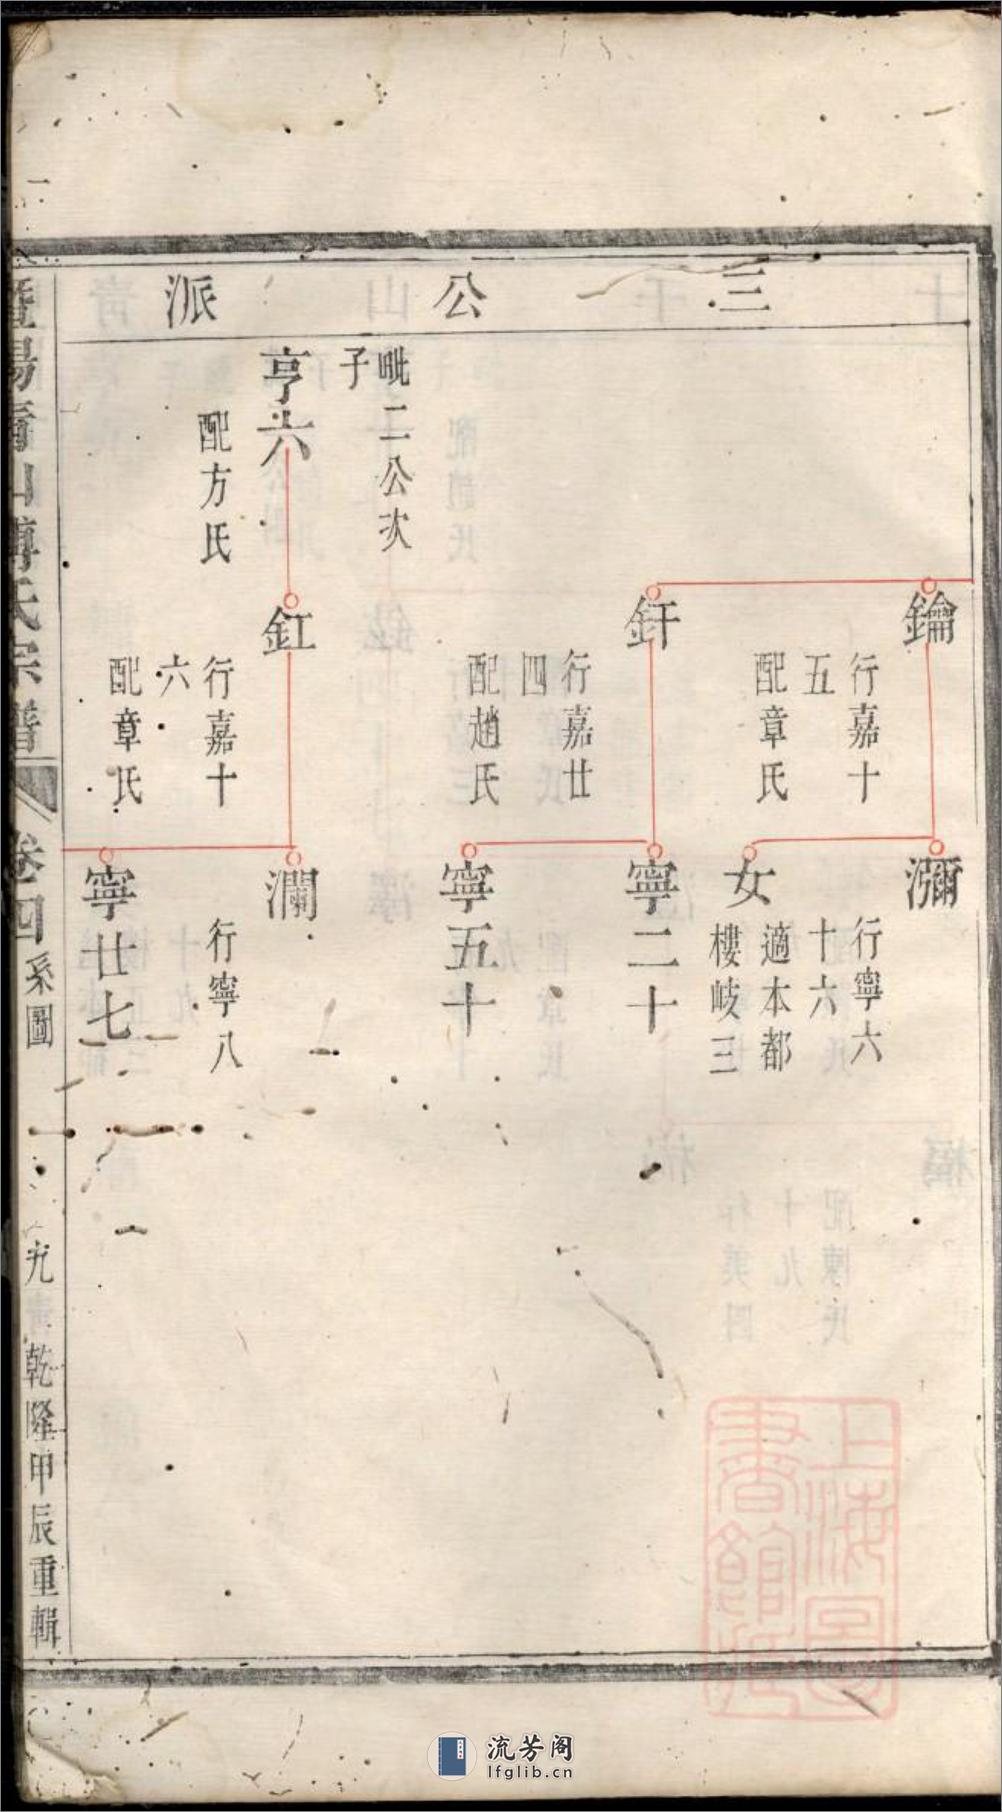 三公派
鑰
行嘉十
五
配章氏
釬
行嘉廿
四
配趙氏
毗二公次
子
亨六
配方氏
釭
行嘉十
六
配章氏
瀰
行寧六
十六
女
適本都
樓岐三
寧二十
寧五十
瀾
行寧八
寧廿七
暨陽青山傅氏宗譜
卷四
系圖
九
乾隆甲辰重輯
上海圖書館藏
流芳阁
lfglib.cn